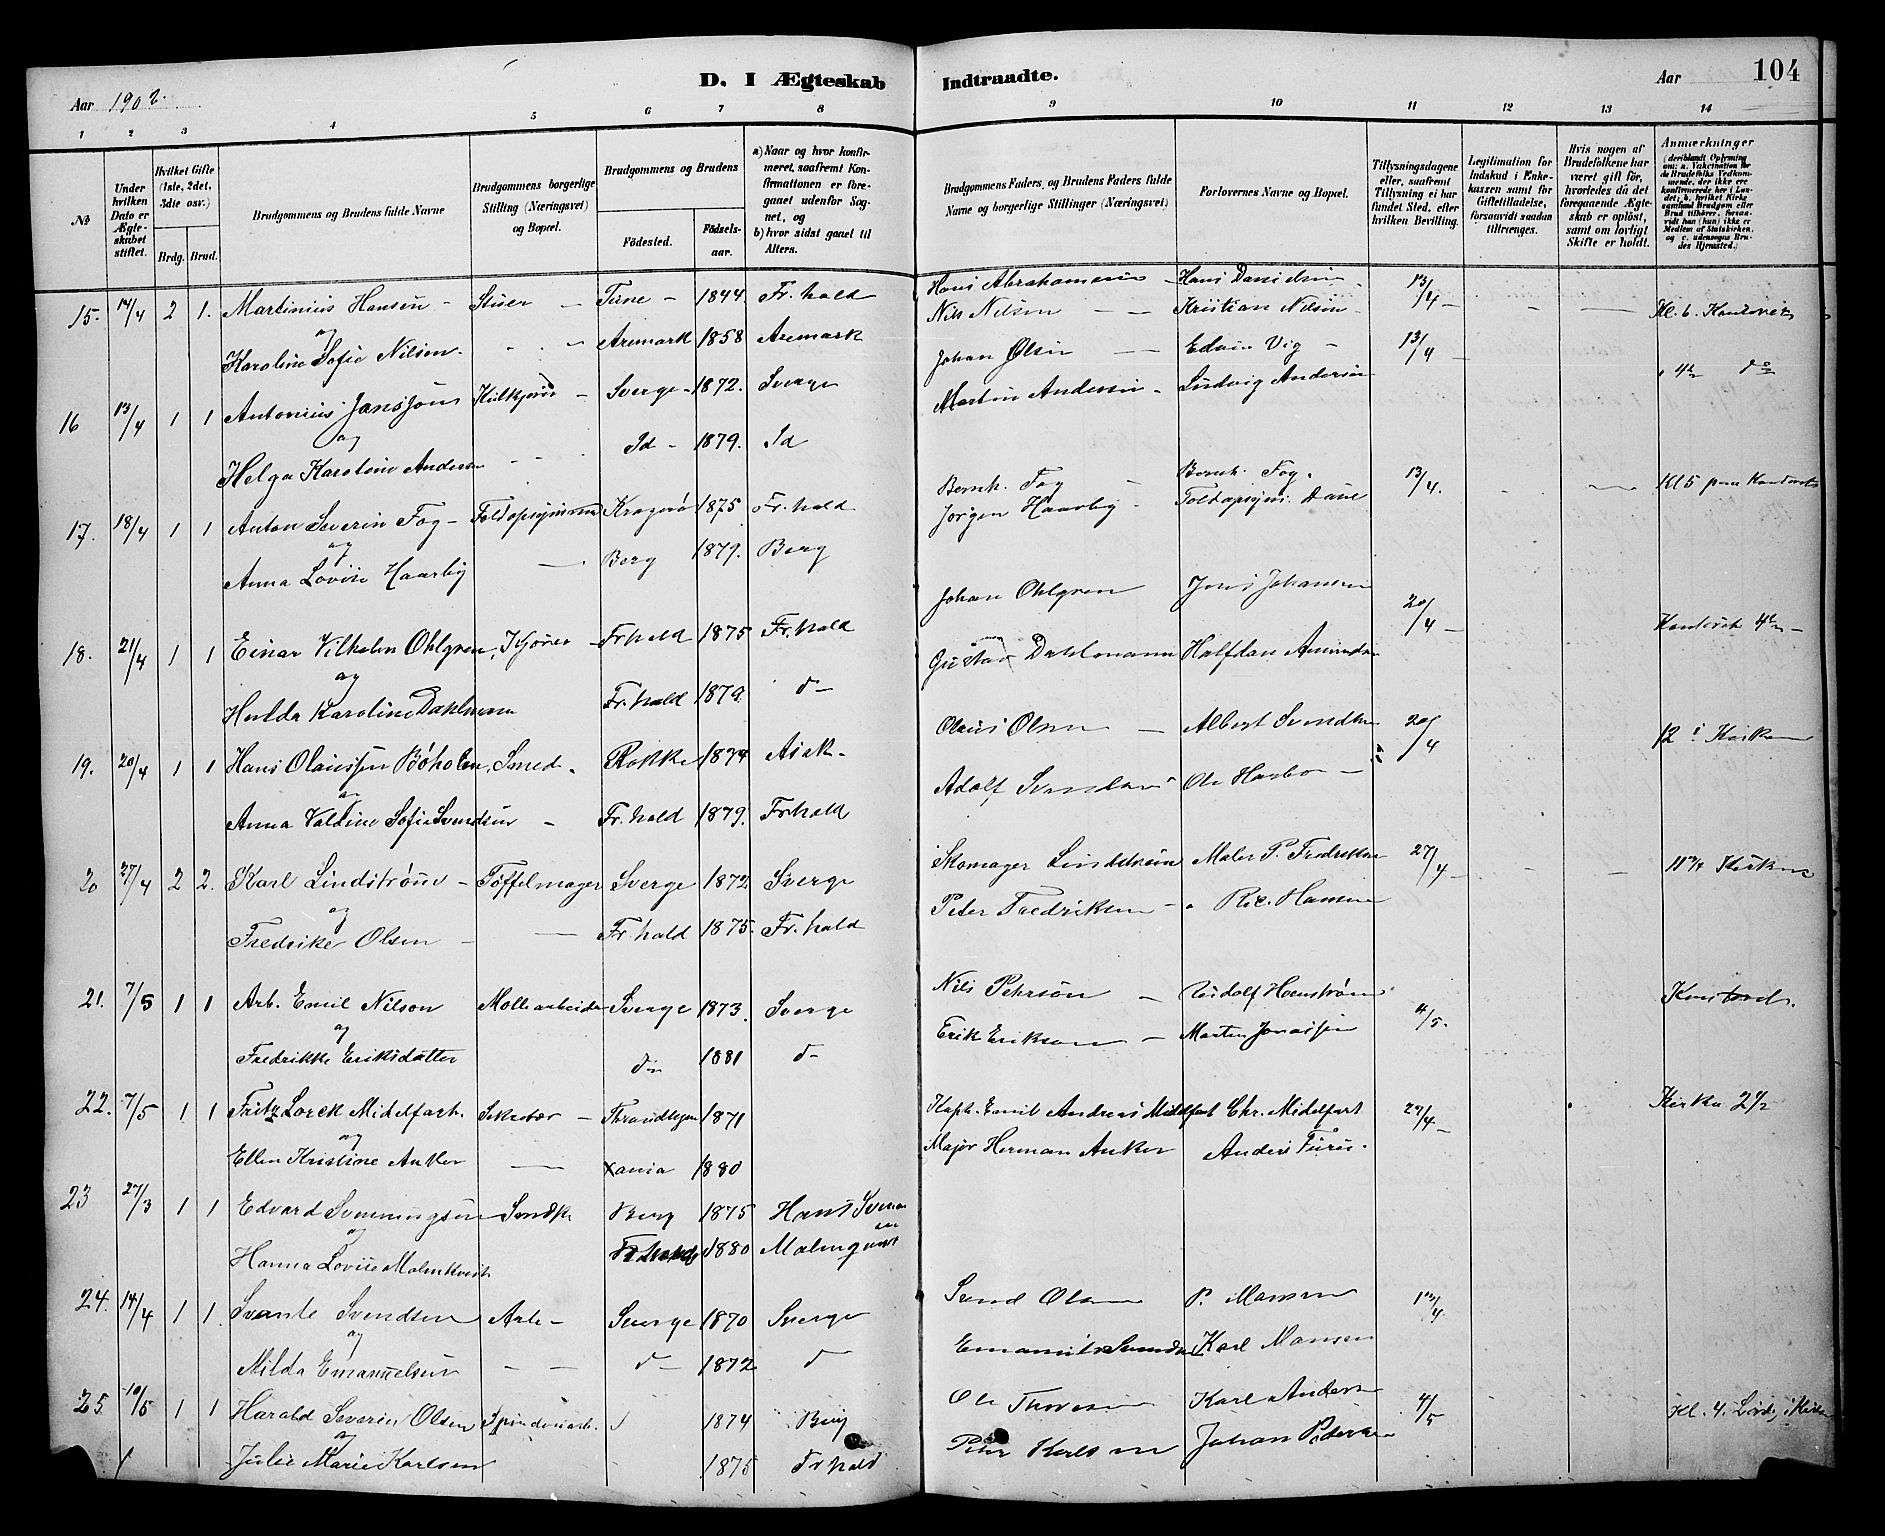 D. I Ægteskab Indtraadte.
Aar 1902.
Aar 104
1 2 3 4 5 6 7 8 9 10 11 12 13 14
№
Under hvilken Dato er Ægteskabet stiftet.
Hvilket Gifte (1ste, 2det, 3die osv.)
Brdg. Brud.
Brudgommens og Brudens fulde Navne
Brudgommens borgerlige Stilling (Næringsvei) og Bopæl.
Brudgommens og Brudens
Fødested. Fødselsaar.
a) Naar og hvor konfirmeret, saafremt Konfirmationen er foregaaet udenfor Sognet, og
b) hvor sidst gaaet til Alters.
Brudgommens Faders, og Brudens Faders fulde Navne og borgerlige Stillinger (Næringsvei)
Forlovernes Navne og Bopæl.
Tillysningsdagene eller, saafremt Tillysning ei har fundet Sted, efter hvilken Bevilling.
Legitimation for Indskud i Enkekassen samt for Giftetilladelse, forsaavidt saadan tiltrænges.
Hvis nogen af Brudefolkene har været gift før, hvorledes da det foregaaende Ægteskab er opløst, samt om lovligt Skifte er holdt.
Anmærkninger
(deriblandt Oplysning om: a. Vaccination for de Brudefolks Vedkommende, der ikke ere konfirmerede her i Landet; b. hvilket Kirkesamfund Brudgom eller Brud tilhører, forsaavidt han (hun) ikke er Medlem af Statskirken, og c. udensogns Brudes Hjemsted.)
15. 14/4 2 1. Martinius Hansen - Stuer - Tune - 1844. Fr.hald Hans Abrahamsen Hans Danielsen 13/4 - Kl. 6.
og
Karoline Sofie Nilsen. Aremark 1858 Aremark Nils Nilsen - Kristian Nilsen
16 13/4 1 1 Antonius Jansson Sverge - 1872. Sverge Johan Olsen - Edvin Vig - 13/4 4½ do
og
Helga Karoline Andersen Id - 1879. Id Martin Andersen - Ludvig Andersen
17. 18/4 1 1 Anton Severin Fog - Toldopsynsm Kragerø 1875 Fr.hald Bernh. Fog - Bernh. Fog. 13/4. Kl 5
og
Anna Lovise Haarby - Berg 1879. Berg Jørgen Haarby - Toldopsyns.
18. 21/4 1 1 Einar Vilhelm Ohlgren, Kjører - Fr.hald 1875 Fr.hald Johan Ohlgren Jens Johansen 20/4 -
og
Hulda Karoline Dahlmann Fr.hald 1879. d- Gustav Dahlmann Halfdan
19. 20/4 1 1 Hans Olaussen Bøholm, Smed - Rokke 1874 Asak - Olaus Olsen - Albert Svendsen 20/4 12 i Kirken
og
Anna Valdine Sofie Svendsen - Fr.hald 1879. Fr.hald Adolf Svendsen Ole
20 27/4 2 2. Karl Lindstrøm - Tøffelmager Sverge 1872 Sverge Skomager Lindstrøm Maler P. Fredriksen 27/4 - Kirken
og
Fredrike Olsen - Fr.hald 1875. Fr.hald Peter Fredriksen - Hansen
21. 7/5 1 1 Arb. Emil Nilson Møllearbeider Sverge 1873. Sverge Nils Pehrson - Rudolf 4/5.
og
Fredrikke Eriksdatter do 1881 d- Erik Erikson - Martin Jonassen
22. 7/5 1 1 Fritz Lorck Midelfart. Sekretær - Throndhjem 1871 Kapt. Emil Andreas Midelfart Chr. Midelfart 27/4 - Kirken 2½
og
Ellen Kristine Anker - Xania 1880 Major Herman Anker Anders Furu.
23 27/3 1 1 Edvard Svenningsen Berg 1875 Hans
og
Hanna Lovise Malmkvist Fr.hald 1880 Malmqvist
24. 14/4 1 1 Svante Svendsen Arb - Sverge 1870 Sverge Svend Olsen P. Mansen 13/4
og
Milda Emanuelsen - d- 1872 d Karl Mansen
25. 10/5 1 1 Harald Severin Olsen 1874 Berg Ole Karl Andersen 4/5 Kl. 4.
og
Julie Marie Karlsen 1875 Fr.hald Peter Karlsen Johan Pedersen